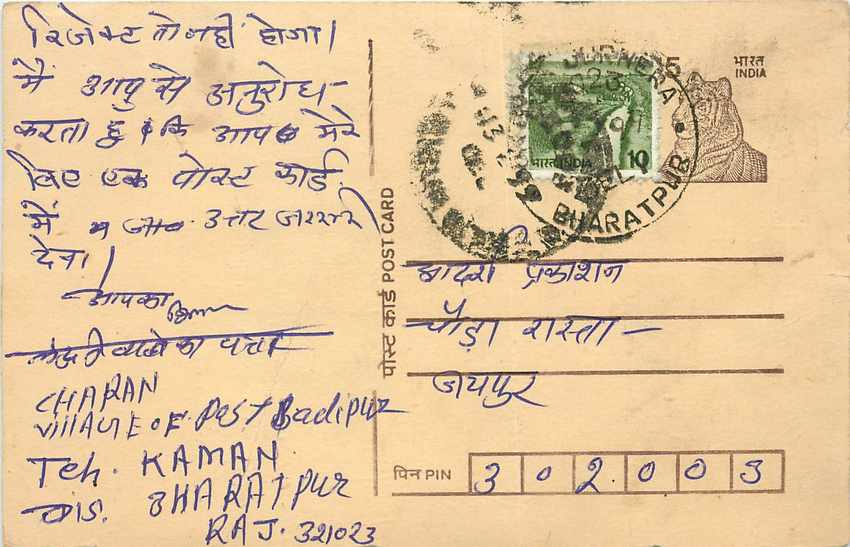 रिजेक्ट तो नहीं होगा।
मैं आप से अनुरोध-
करता हु कि आप मेरे
लिए एक पोस्ट कार्ड
में जवाब उत्तर जरूर
देना।
आपका
CHARAN
VIllAGE OF. Post Badipur
Teh. KAMAN
DIS. BHARATPUR
RAJ. 321023
पोस्ट कार्ड POST CARD
भारत
INDIA
भारत INDIA 10
JURHERA
BHARATPUR
आदर्श प्रकाशन
चौड़ा रास्ता -
जयपुर
पिन PIN 302003